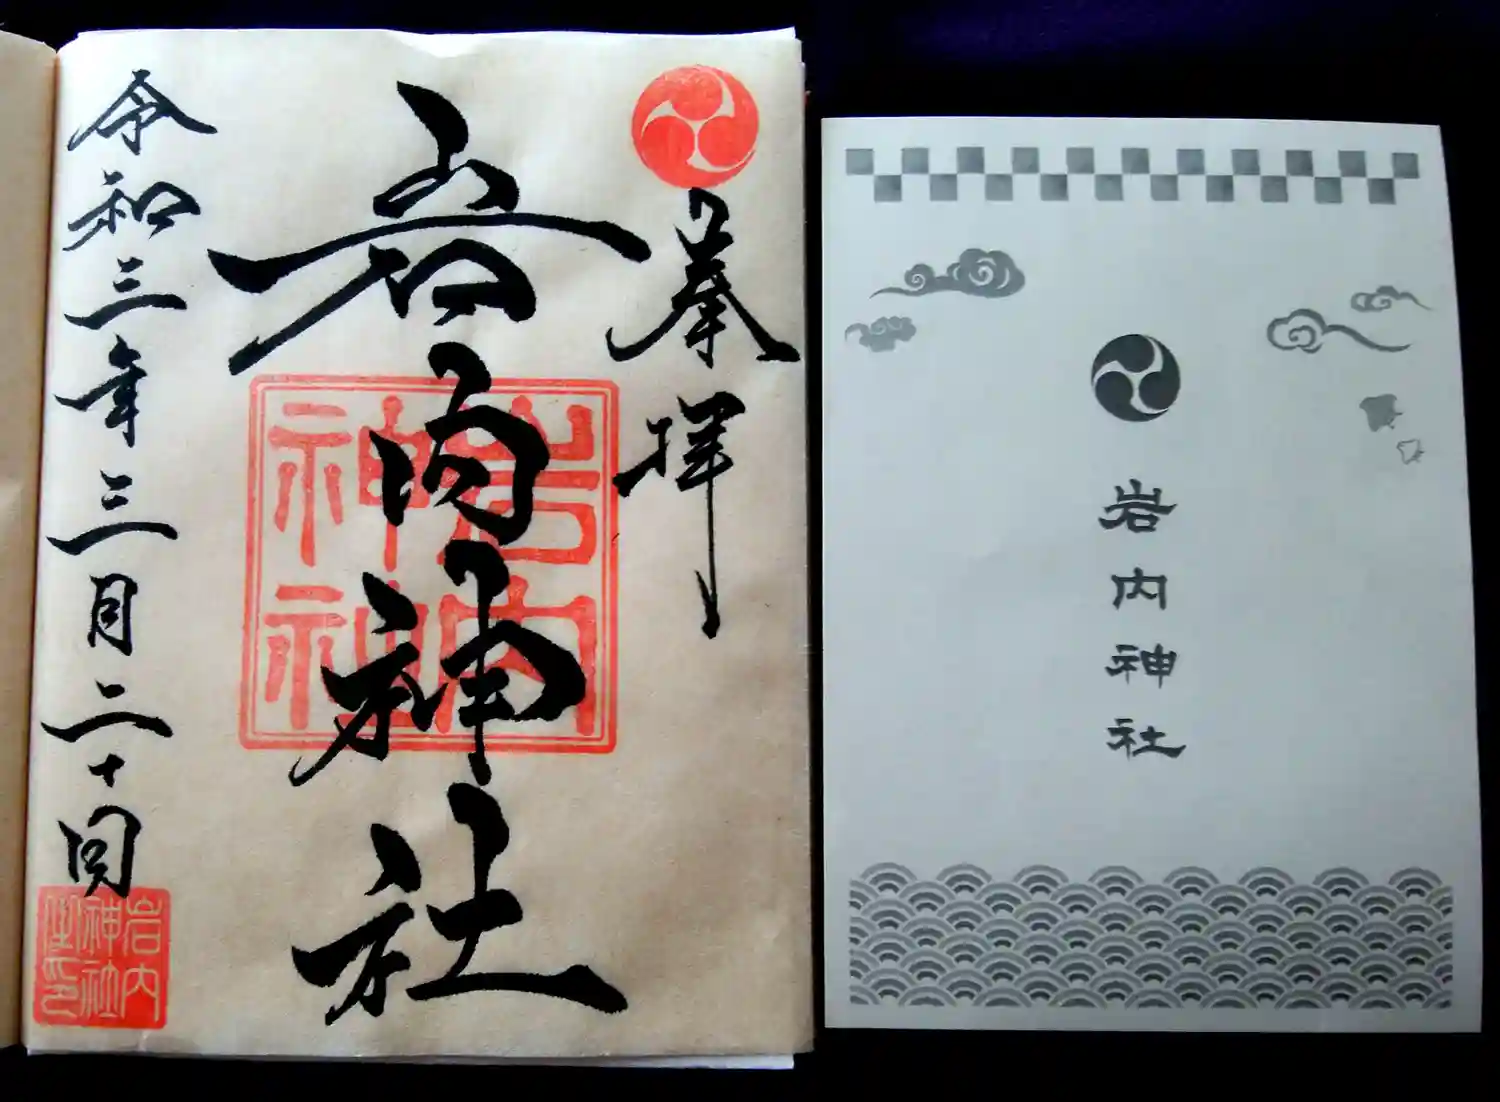 奉拝
岩内神社
岩内
神社
令和三年三月二十日
岩内
神社
之印
岩内神社